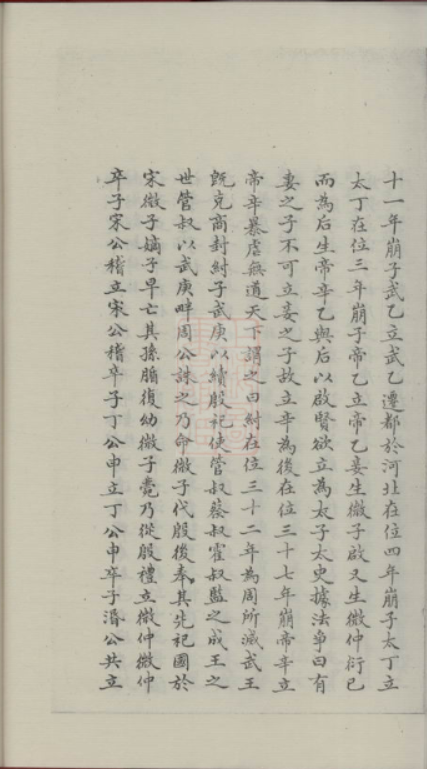 十一年崩子武乙立武乙遷都於河北在位四年崩子太丁立
太丁在位三年崩子帝乙立帝乙妾生微子啟又生微仲衍已
而為后生帝辛乙與后以啟賢欲立為太子太史據法爭曰有
妻之子不可立妾之子故立辛為後在位三十七年崩帝辛立
帝辛暴虐無道天下謂之曰紂在位三十二年為周所滅武王
既克商封紂子武庚以續殷祀使管叔蔡叔霍叔監之成王之
世管叔以武庚畔周公誅之乃命微子代殷後奉其先祀國於
宋微子嫡子早亡其孫腯復幼微子薨乃從殷禮立微仲微仲
卒子宋公稽立宋公稽卒子丁公申立丁公申卒子湣公共立